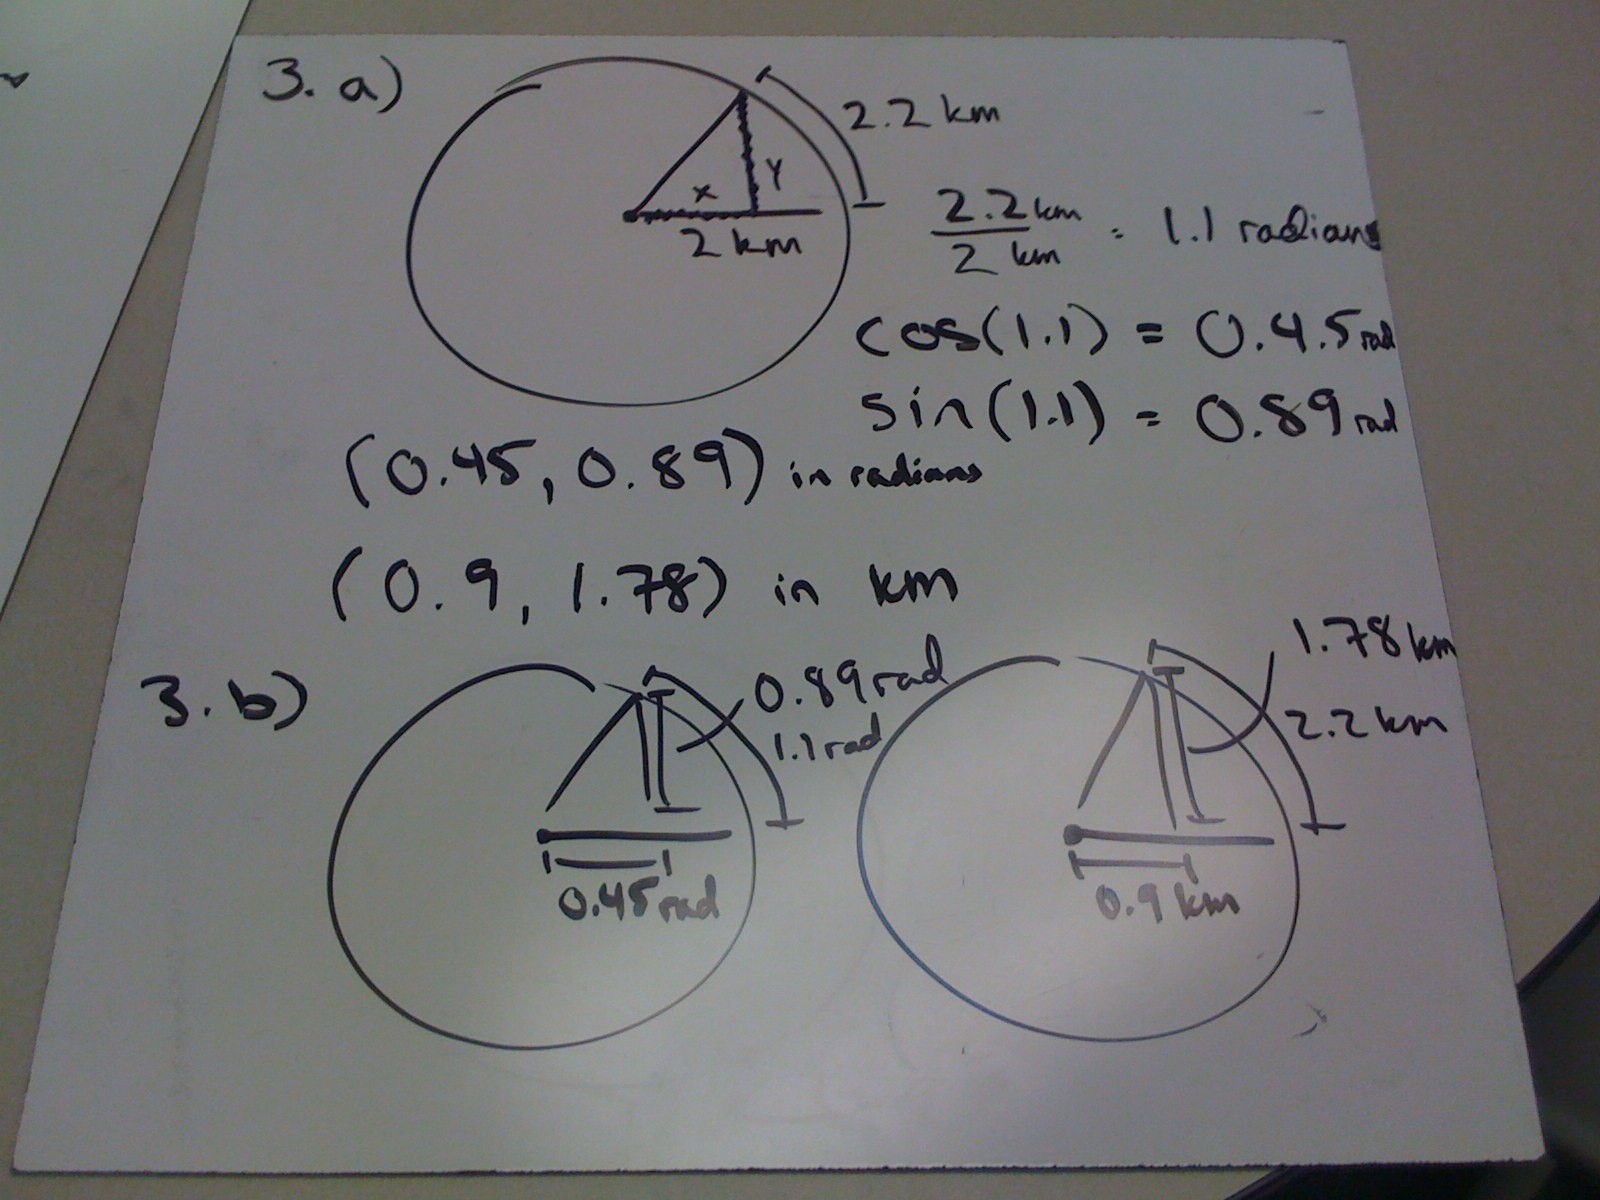 3. a)
2.2 km
x
y
2 km
2.2 km
2 km
= 1.1 radians
cos(1.1) = 0.4.5 rad
sin(1.1) = 0.89 rad
(0.45, 0.89) in radians
(0.9, 1.78) in km
3. b)
0.89 rad
1.1 rad
0.45 rad
1.78 km
2.2 km
0.9 km